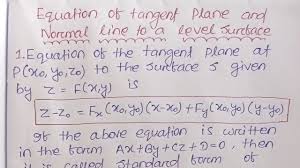 Equation of tangent plane and
Normal Line to a level Surface
1. Equation of the tangent plane at
P(x₀, y₀, z₀) to the surface S given
by z = F(x,y) is
z-z₀ = Fx(x₀,y₀)(x-x₀) + Fy(x₀,y₀)(y-y₀)
If the above equation is written
in the form Ax+By+Cz+D=0, then
it is called standard form of